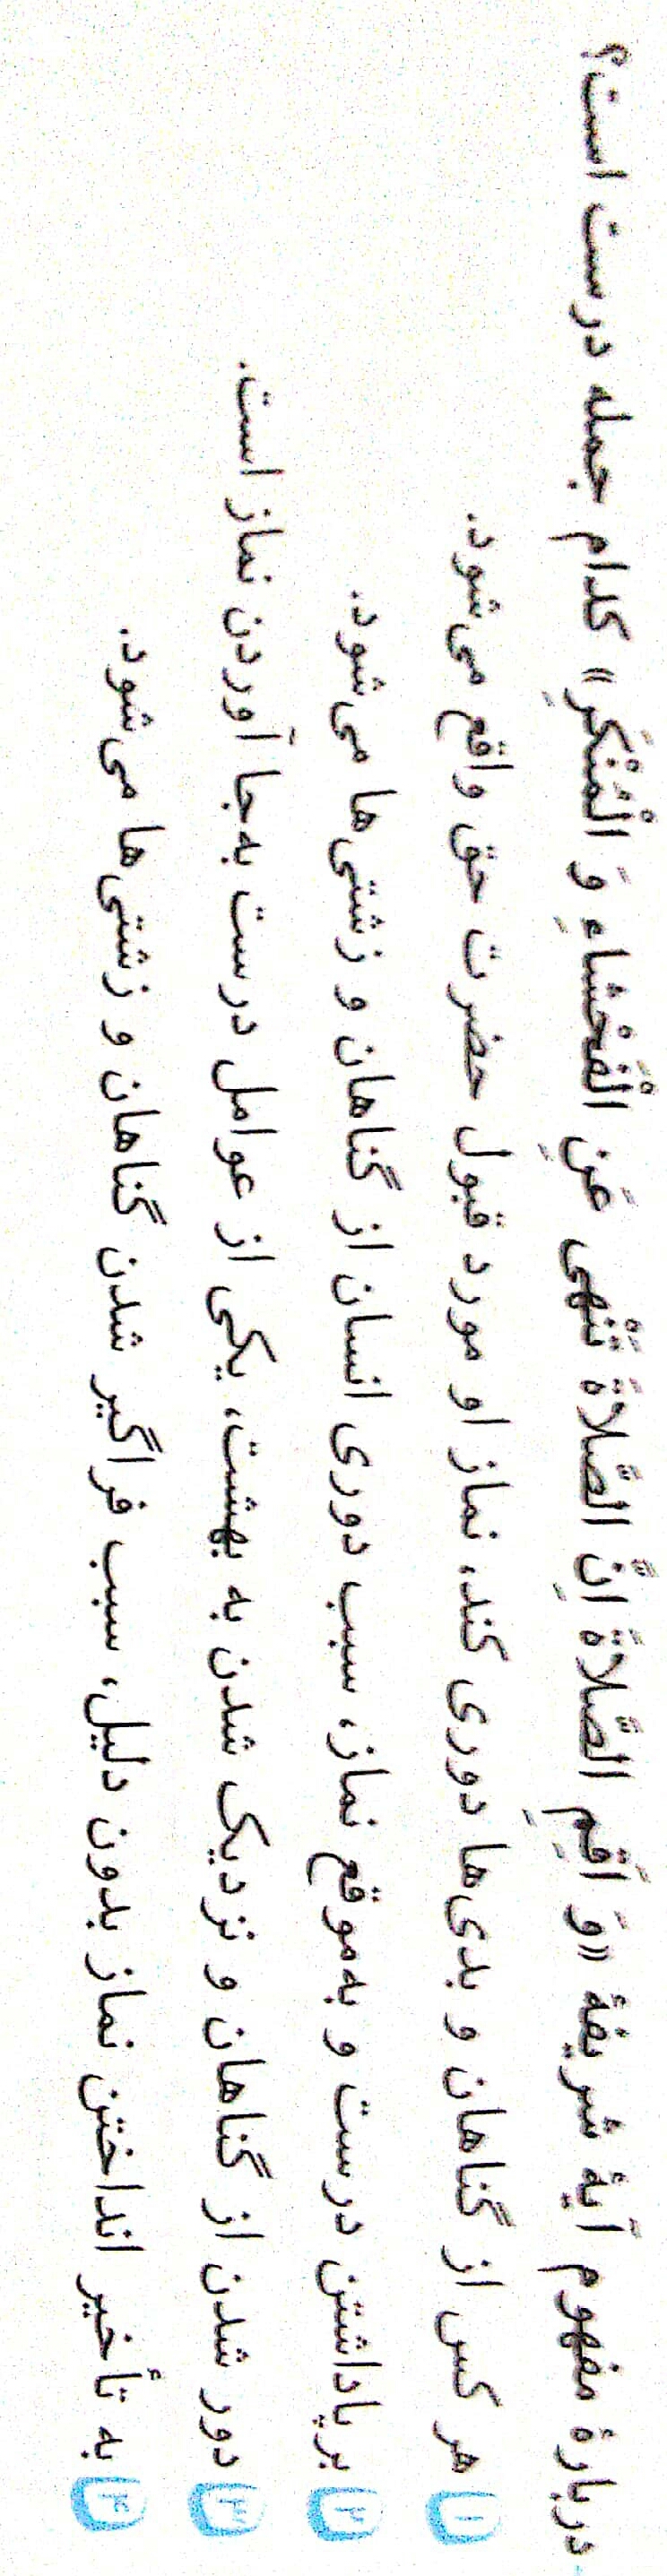 دربارهٔ مفهوم آیهٔ شریفهٔ «وَ اَقِمِ الصَّلاةَ اِنَّ الصَّلاةَ تَنْهی عَنِ الْفَحْشاءِ وَ الْمُنْکَرِ» کدام جمله درست است؟
۱ هر کس از گناهان و بدی‌ها دوری کند، نماز او مورد قبول حضرت حق واقع می‌شود.
۲ برپاداشتن درست و به‌موقع نماز، سبب دوری انسان از گناهان و زشتی‌ها می‌شود.
۳ دور شدن از گناهان و نزدیک شدن به بهشت، یکی از عوامل درست به‌جا آوردن نماز است.
۴ به تأخیر انداختن نماز بدون دلیل، سبب فراگیر شدن گناهان و زشتی‌ها می‌شود.